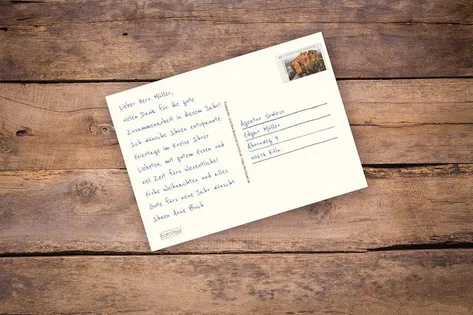 Lieber Herr Müller,
vielen Dank für die gute
Zusammenarbeit in diesem Jahr!
Ich wünsche Ihnen entspannte
Feiertage im Kreise Ihrer
Liebsten, mit gutem Essen und
viel Zeit fürs Wesentliche!
Frohe Weihnachten und alles
Gute fürs neue Jahr wünscht
Ihnen Anne Buch
Agentur
Edgar Müller
9
Köln